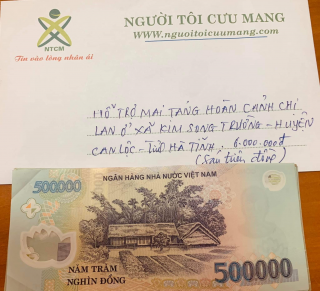 NGƯỜI TÔI CƯU MANG
www.nguoitoicuumang.com
NTCM
Tin vào lòng nhân ái
HỖ TRỢ MAI TÁNG HOÀN CẢNH CHỊ
LAN Ở XÃ KIM SONG TRƯỜNG - HUYỆN
CAN LỘC - TỈNH HÀ TĨNH : 6.000.000đ
(Sáu triệu đồng)
NGÂN HÀNG NHÀ NƯỚC VIỆT NAM
500000
NĂM TRĂM
NGHÌN ĐỒNG
500000